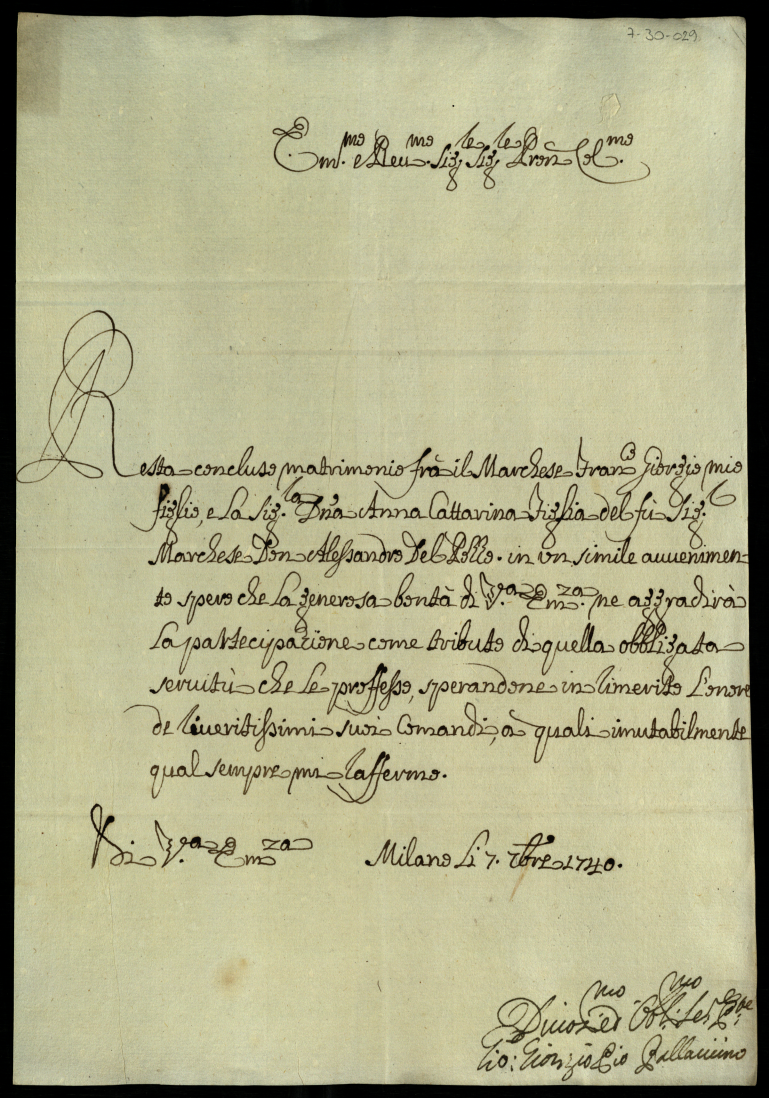 7-30-029
Em.mo e Reu.mo Sig.le Sig.le Pron Col.mo
Resta concluso matrimonio frà il Marchese Fran.co Giorgio mio
figlio, e la Sig.la Dna Anna Cattarina Figlia del fù Sig.
Marchese Don Alessandro Del Pozzo. in vn simile auuenimen-
to spero che la generosa bontà di V.a Em.za ne aggradirà
la partecipazione come tributo di quella obbligata
seruitù che le proffesso, sperandone in rimerito l'onore
de riueritissimi suoi Comandi, à quali imutabilmente
qual sempre mi rafferme.
Di V.a Em.za Milano li 7. 7bre 1740.
Diuo.mo ed Obbl.mo Ser.re
Gio: Giorgio Pio Pallauicino